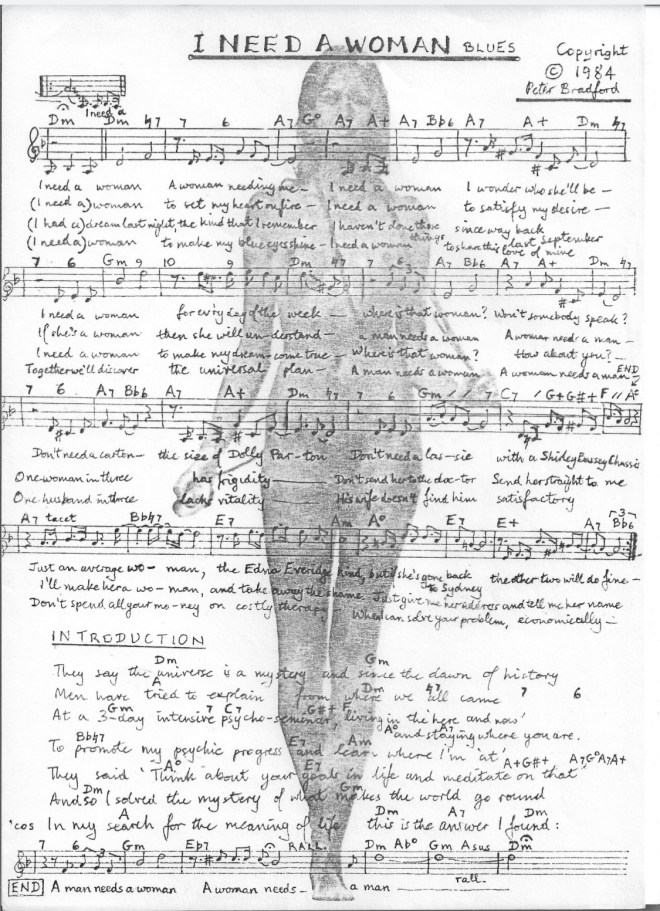 I NEED A WOMAN BLUES
Copyright
© 1984
Peter Bradford
I need a
Dm Dm 47 7 6 A7 G° A7 A+ A7 Bb6 A7 A+ Dm 47
I need a woman A woman needing me – I need a woman I wonder who she'll be –
(I need a) woman to set my heart on fire – I need a woman to satisfy my desire –
(I had a) dream last night, the kind that I remember I haven't done those things since way back last September
(I need a) woman to make my blue eyes shine – I need a woman to share this love of mine
7 6 Gm 9 10 9 Dm 47 7 6 A7 Bb6 A7 A+ Dm 47
I need a woman for ev'ry day of the week – where is that woman? Won't somebody speak?
If she's a woman then she will un-derstand – a man needs a woman A woman needs a man –
I need a woman to make my dream – come true – Where is that woman? How about you? –
Together we'll discover the universal plan – A man needs a woman A woman needs a man – END
7 6 A7 Bb6 A7 A+ Dm 47 7 6 Gm // 7 C7 / G+ G#+ F // A°
Don't need a carton – the size of Dolly Par-ton Don't need a las-sie with a Shirley Bassey Chassis
One woman in three has frigidity – Don't send her to the doc-tor Send her straight to me
One husband in three lacks vitality – His wife doesn't find him satisfactory
A7 tacet Bb47 E7 Am A° E7 E+ A7 Bb6
3
Just an average wo-man, the Edna Everidge kind, but if she's gone back to Sydney the other two will do fine –
I'll make her a wo-man, and take away the shame Just give me her address and tell me her name
Don't spend all your mo-ney on costly therapy, When I can solve your problem, economically –
INTRODUCTION
Dm Gm
They say the universe is a mystery and since the dawn of history
A Dm 47 7 6
Men have tried to explain from where we all came
Gm 7 C7 G#+ F
At a 3-day intensive psycho-seminar, 'living in the here and now'
A° A7
and staying where you are.
Bb47 E7 Am
To promote my psychic progress and learn where I'm 'at'
A° E7 A+ G#+, A7 G° A7 A+
They said 'Think about your goals in life and meditate on that'
Dm Gm
And so I solved the mystery of what makes the world go round
A Dm A7 Dm
'cos In my search for the meaning of life this is the answer I found:
7 6 Gm Eb7 RALL. Dm Ab° Gm Asus Dm
END A man needs a woman A woman needs – a man – rall.